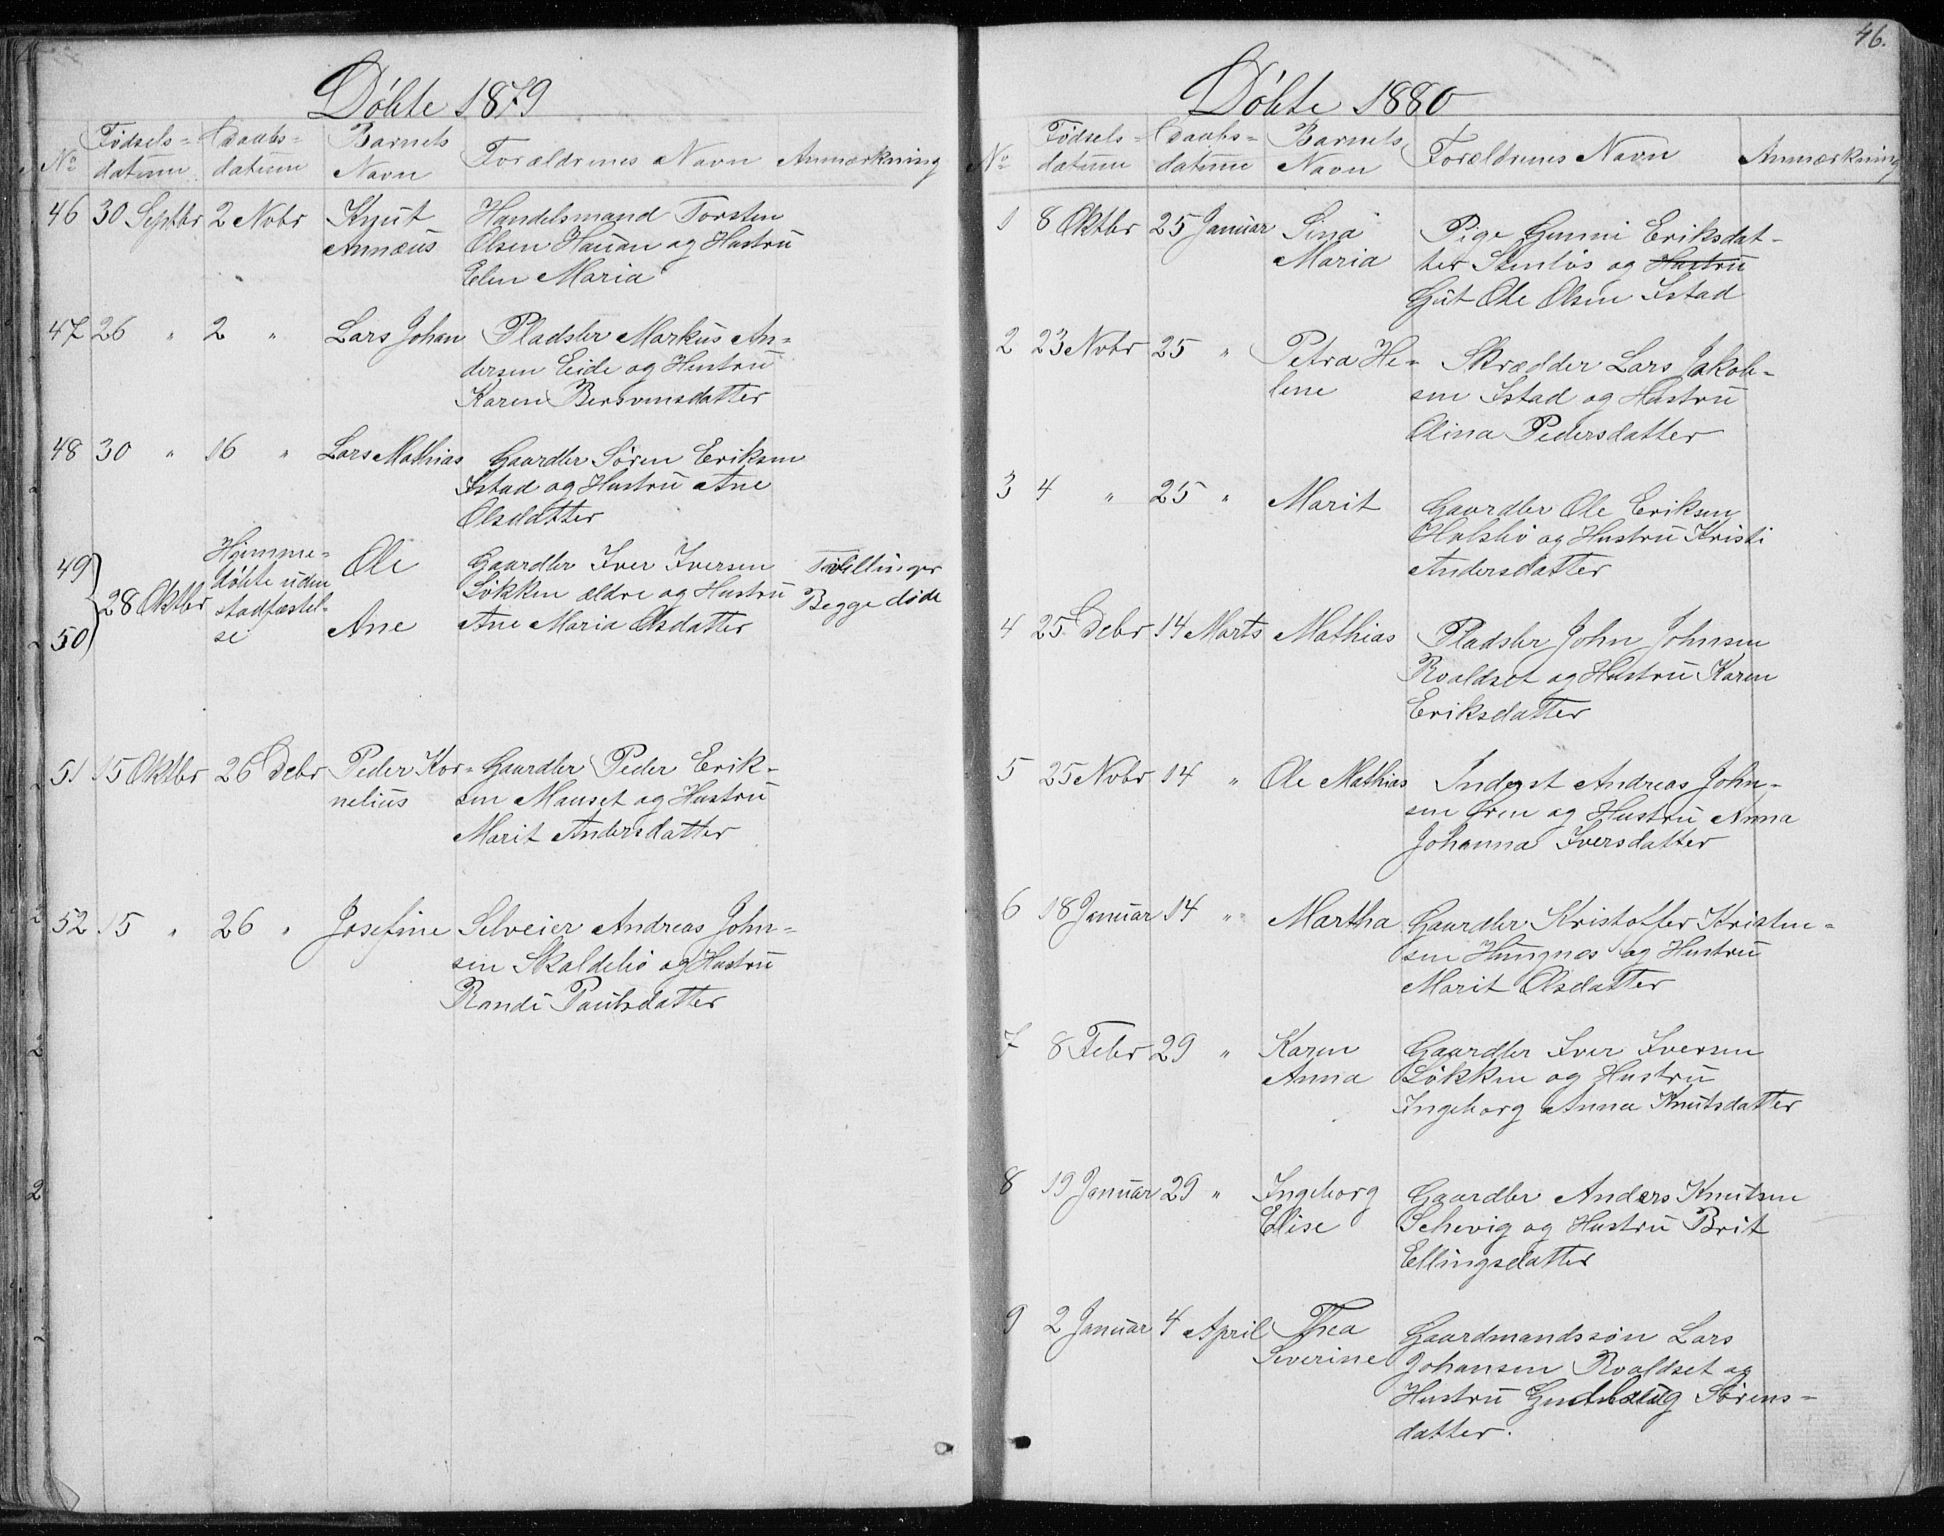 Døbte 1879
No Fødsels= datum Daabs= datum Barnets Navn Forældrenes Navn Anmærkning
46 30 Septbr 2 Novbr Knut Handelsmand Torsten
Annæus Olsen Hauan og Hustru
Elen Maria
47 26 " 2 " Lars Johan Pladsbr Markus An=
dersen Eide og Hustru
Karen Bersvensdatter
48 30 " 16 " Lars Mathias Gaardbr Søren Eriksen
Istad og Hustru Ane
Olsdatter
49 Hjemme= Ole Gaardbr Iver Iversen Tvillinger
28 Oktbr døbte uden Løkken ældre og Hustru Begge døde
50 stadfæstel- Ane Ane Maria Olsdatter
se
51 15 Oktbr 26 Decbr Peder Kor= Gaardbr Peder Erik=
nelius sen Mauset og Hustru
Marit Andersdatter
52 15 " 26 " Josefine Selveier Andreas John=
sen Skaldebø og Hustru
Randi Paulsdatter
46.
Døbte 1880
No Fødsels= datum Daabs= datum Barnets Navn Forældrenes Navn Anmærkning
1 8 Oktbr 25 Januar Sina Pige Gunni Eriksdat=
Maria ter Stenløs og Hustru
Gut Ole Olsen Istad
2 23 Novbr 25 " Petra He= Skrædder Lars Jakob=
lene sen Istad og Hustru
Olina Pedersdatter
3 4 " 25 " Marit Gaardbr Ole Eriksen
Holsbø og Hustru Kristi
Andersdatter
4 25 Decbr 14 Marts Mathias Pladsbr John Johnsen
Roaldset og Hustru Karen
Eriksdatter
5 25 Novbr 14 " Ole Mathias Inderst Andreas John=
sen Øren og Hustru Anna
Johanna Iversdatter
6 18 Januar 14 " Martha Gaardbr Kristoffer Kristen=
sen Hungnes og Hustru
Marit Olsdatter
7 8 Febr 29 " Karen Gaardbr Iver Iversen
Anna Løkken og Hustru
Ingeborg Anna Knutsdatter
8 19 Januar 29 " Ingeborg Gaardbr Anders Knutsen
Elise Schevig og Hustru Brit
Ellingsdatter
9 2 Januar 4 April Thea Gaardmandssøn Lars
Severine Johansen Roaldset og
Hustru Gudbaug Sørens=
datter.